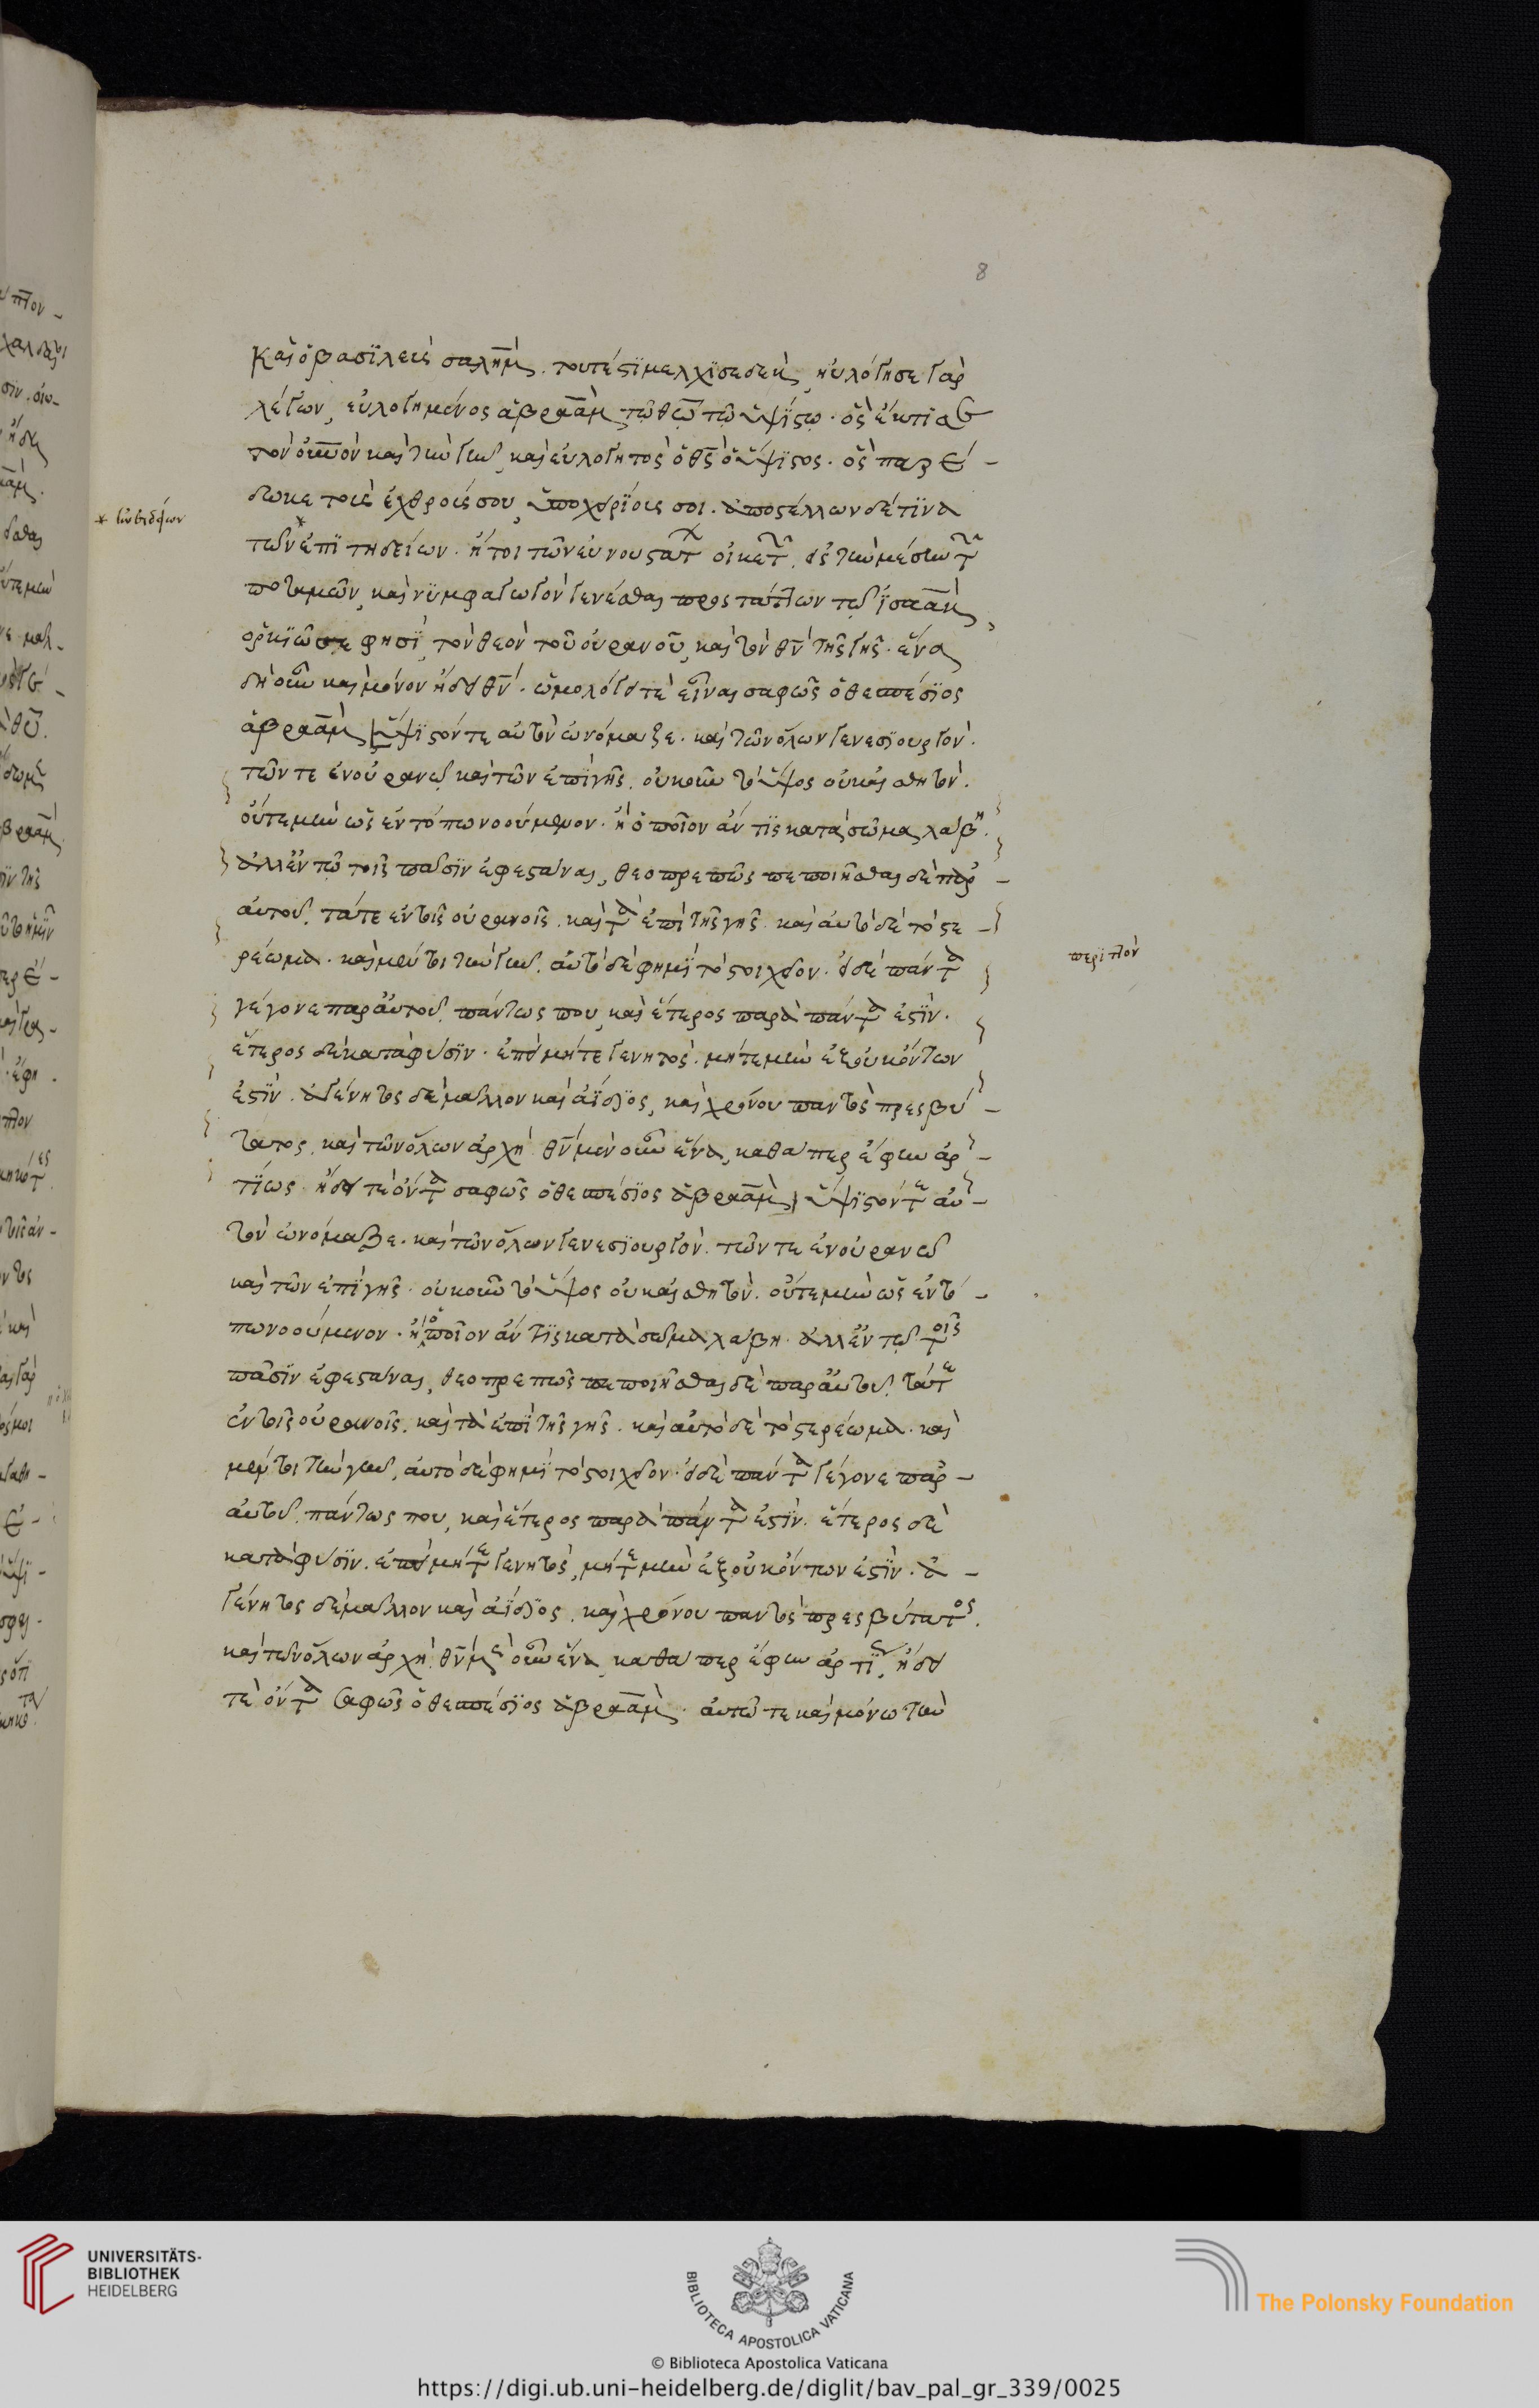 8
καὶ ὁ βασϊλεὺς σαλὴμ. τουτέστϊ μελχϊσεδεκ, ηὐλόγησε γὰρ
λέγων, εὐλογημένος ἀβραὰμ τῷ θεῷ τῷ ὑψίστῳ. ὃς ἔκτισε
τὸν οὐνὸν καὶ τὴν γῆν, καὶ εὐλογητὸς ὁ θς ὁ ὕψιστος. ὃς παρέ-
δωκε τοὺς ἐχθρούς σου, ὑποχειρίους σοι. ἀποστέλλων δέ τϊνα
τῶν* ἐπϊτηδείων. ἤτοι τῶν εὐνουστάτων οἰκετῶν, εἰς τὴν μέσην τῶν
ποταμῶν, καὶ νϋμφαγωγὸν γενέσθαι προστάττων τῷ ϊσαὰκ,
ὁρκϊῶ σε φησϊ, τὸν θεὸν τοῦ οὐρανοῦ, καὶ τὸν θν τῆς γῆς. ἕνα
δὴ οὖν καὶ μόνον ἤδει θν. ὡμολόγει τὲ εἶναι σαφῶς ὁ θεσπέσϊος
ἀβραὰμ, ὕψιστόν τε αὐτὸν ὠνόμαζε. καὶ τῶν ὅλων γενεσϊουργὸν.
τῶν τε ἐν οὐρανῷ καὶ τῶν ἐπϊ γῆς. οὐκοῦν τὸ ὕψος οὐκ αἰσθητὸν.
οὔτε μὴν ὡς ἐν τόπω νοούμενον. ἢ ὁποῖον ἄν τϊς κατὰ σῶμα λάβη.
ἀλλ' ἐν τῷ τοῖς πᾶσϊν ἐφεστάναι, θεοπρεπῶς πεποιῆσθαι δὲ παρ-
αὐτοῦ, τά τε ἐν τοῖς οὐρανοῖς. καὶ τὰ ἐπὶ τῆς γῆς. καὶ αὐτὸ δὲ τὸ στε-
ρέωμα. καὶ μέντοι τὴν γῆν. αὐτὸ δὲ φημϊ τὸ στοιχεῖον. εἰ δὲ πάντα
γέγονε παρ αὐτοῦ. πάντως που, καὶ ἕτερος παρὰ πάντα ἐστϊν.
ἕτερος δὲ κατὰ φύσϊν. ἐπεὶ μήτε γενητὸς. μήτε μὴν ἐξ οὐκ ὄντων
ἐστϊν. ἀγένητος δὲ μᾶλλον καὶ ἀΐδϊος, καὶ χρόνου παντὸς πρεσβύ-
τατος, καὶ τῶν ὅλων ἀρχὴ. θν μὲν οὖν ἕνα, καθάπερ ἔφην ἀρ-
τϊως. ἤδει τὲ ὄντα σαφῶς ὁ θεσπέσϊος ἀβραὰμ, ὕψιστόν τε αὐ-
τὸν ὠνόμαζε. καὶ τῶν ὅλων γενεσϊουργὸν. τῶν τε ἐν οὐρανῷ
καὶ τῶν ἐπϊ γῆς. οὐκοῦν τὸ ὕψος οὐκ αἰσθητὸν. οὔτε μὴν ὡς ἐν τό-
πω νοούμενον. ἢ ὁποῖον ἄν τϊς κατὰ σῶμα λάβη. ἀλλ' ἐν τῷ τοῖς
πᾶσϊν ἐφεστάναι, θεοπρεπῶς πεποιῆσθαι δὲ παρ αὐτοῦ. τά τε
ἐν τοῖς οὐρανοῖς. καὶ τὰ ἐπϊ τῆς γῆς. καὶ αὐτὸ δὲ τὸ στερέωμα. καὶ
μέντοι τὴν γῆν, αὐτὸ δὲ φημϊ τὸ στοιχεῖον. εἰ δὲ πάντα γέγονε παρ-
αὐτοῦ. πάντως που, καὶ ἕτερος παρὰ πάντα ἐστϊν. ἕτερος δὲ
κατὰ φύσϊν. ἐπεὶ μήτε γενητὸς, μήτε μὴν ἐξ οὐκ ὄντων ἐστϊν. ἀ-
γένητος δὲ μᾶλλον καὶ ἀΐδϊος, καὶ χρόνου παντὸς πρεσβύτατος.
καὶ τῶν ὅλων ἀρχὴ. θν μὲν οὖν ἕνα, καθάπερ ἔφην ἀρτίως, ἤδει
τὲ ὄντα σαφῶς ὁ θεσπέσϊος ἀβραὰμ. αὐτῶ τε καὶ μόνω τὴν
περϊττὸν
UNIVERSITÄTS-
BIBLIOTHEK
HEIDELBERG
BIBLIOTECA APOSTOLICA VATICANA
The Polonsky Foundation
© Biblioteca Apostolica Vaticana
https://digi.ub.uni-heidelberg.de/diglit/bav_pal_gr_339/0025